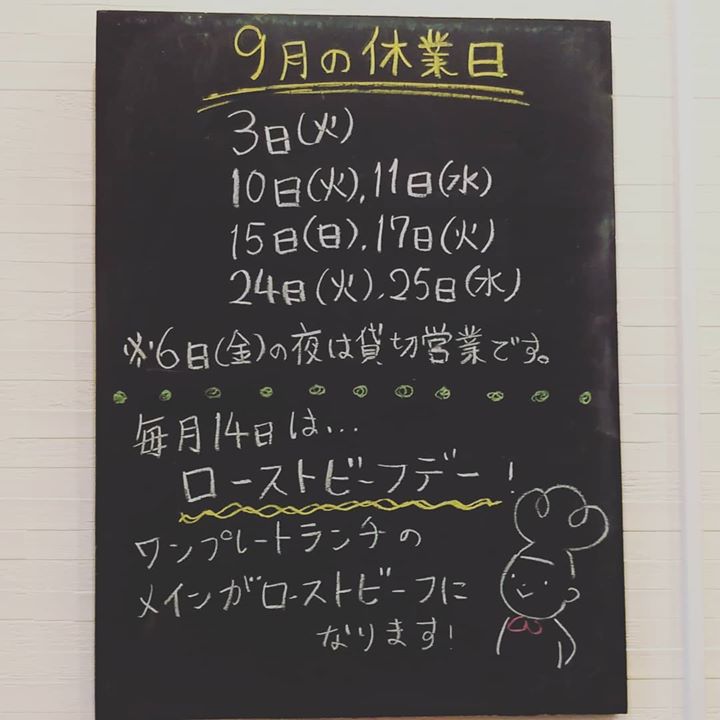 9月の休業日
3日(火)
10日(火)、11日(水)
15日(日)、17日(火)
24日(火)、25日(水)
※6日(金)の夜は貸切営業です。
毎月14日は…
ローストビーフデー!
ワンプレートランチの
メインがローストビーフに
なります!